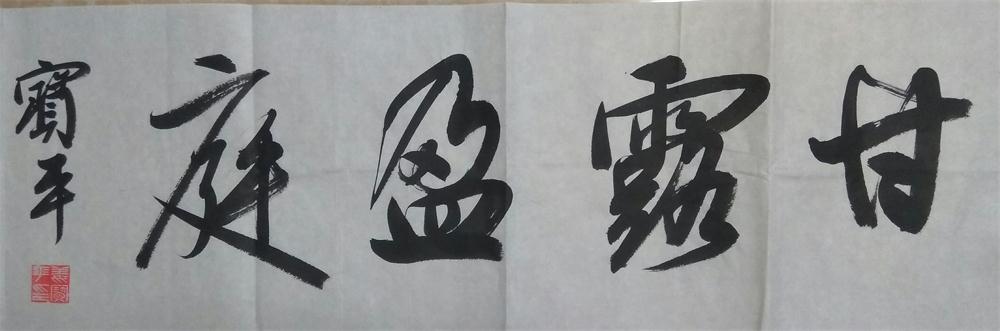 甘露盈庭
寶平